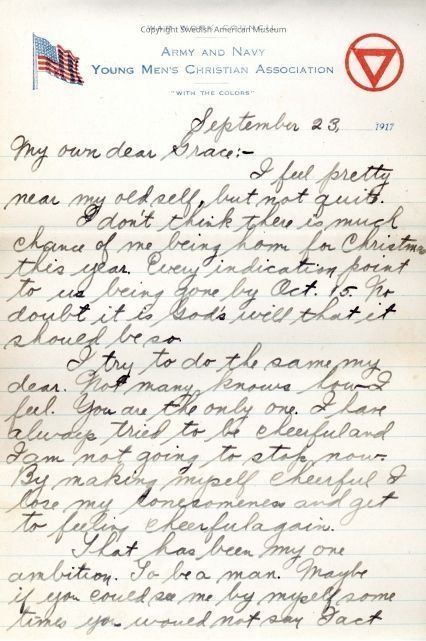 Copyright Swedish American Museum
ARMY AND NAVY
YOUNG MEN'S CHRISTIAN ASSOCIATION
"WITH THE COLORS"
September 23, 1917
My own dear Grace:-
I feel pretty
near my old self, but not quite.
I don't think there is much
chance of me being hom for Christmas
this year. Every indication point
to us being gone by Oct. 15. No
doubt it is God's will that it
should be so.
I try to do the same my
dear. Not many knows how I
feel. You are the only one. I have
always tried to be cheerful and
I am not going to stop now.
By making myself cheerful I
lose my lonesomeness and get
to feeling cheerful again.
That has been my one
ambition. To be a man. Maybe
if you could see me by myself some
times you would not say I act